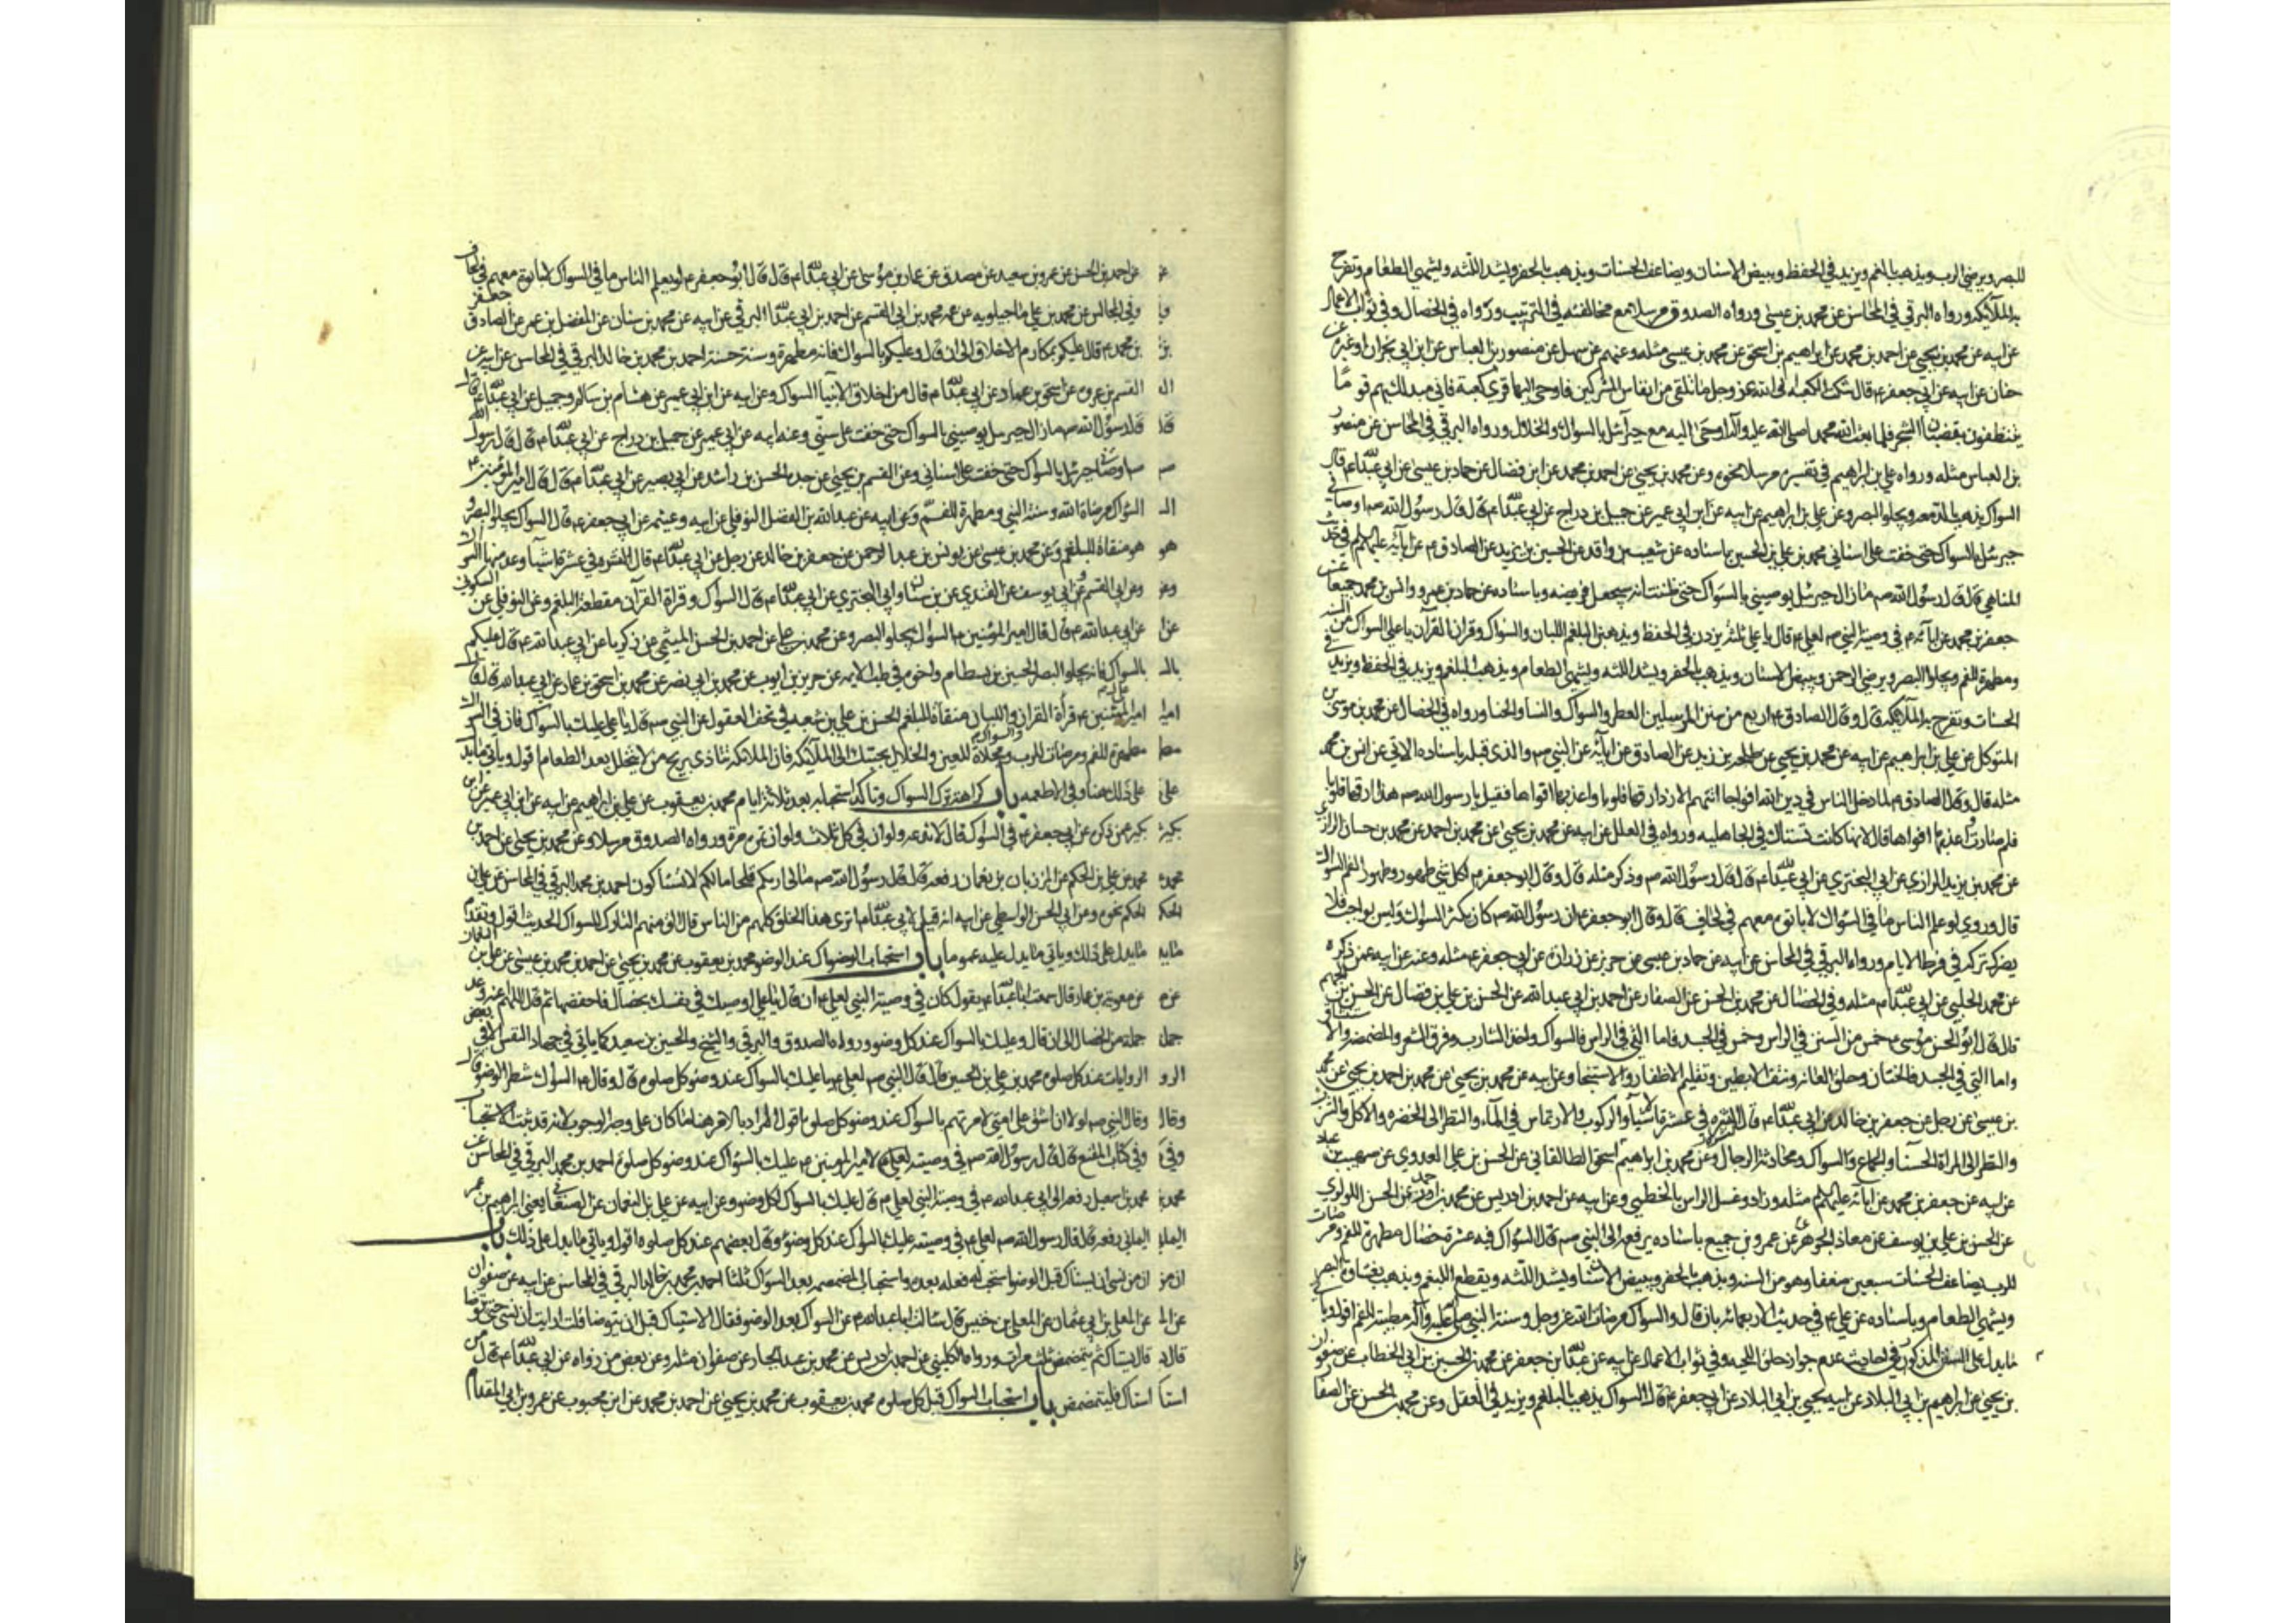 للبصر ويرضي الرب ويذهب بالبلغم ويزيد في الحفظ ويبيض الاسنان ويضاعف الحسنات ويذهب بالحفر ويشد اللثه ويشهي الطعام وتفرح
به الملائكه ورواه البرقي في المحاسن عن محمد بن عيسى ورواه الصدوق مرسلا مع مخالفته في الترتيب ورواه في الخصال وفي ثواب الاعمال
عن ابيه عن محمد بن يحيى عن احمد بن محمد عن ابراهيم بن اسحق عن محمد بن عيسى مثله وعنهم عن سهل عن منصور بن العباس عن ابن ابي نجران او غيره عن
حنان عن ابيه عن ابي جعفر ع قال شكت الكعبه الى الله عز وجل ما تلقى من انفاس المشركين فاوحى اليها قري كعبة فاني مبدلك بهم قوما
يتنظفون بقضبان الشجر فلما بعث الله محمدا صلى الله عليه وآله اوحى اليه مع جبرآئيل بالسواك والخلال ورواه البرقي في المحاسن عن منصور
بن العباس مثله ورواه علي بن ابراهيم في تفسيره مرسلا نحوه وعن محمد بن يحيى عن احمد بن محمد عن ابن فضال عن حماد بن عيسى عن ابي عبدالله ع قال
السواك يذهب بالدمعه ويجلو البصر وعن علي بن ابراهيم عن ابيه عن ابن ابي عمير عن جميل بن دراج عن ابي عبدالله ع قال قال رسول الله ص اوصاني
جبرئيل بالسواك حتى خفت على اسناني محمد بن علي بن الحسين باسناده عن شعيب بن واقد عن الحسين بن زيد عن الصادق ع عن ابآئه عليهم السلم في حديث
المناهي قال قال رسول الله ص ما زال جبرئيل يوصيني بالسواك حتى ظننت انه سيجعله فريضه وباسناده عن حماد بن عمرو وانس بن محمد جميعا عن
جعفر بن محمد عن ابآئه ع في وصية النبي ص لعلي ع قال يا علي ثلثة يزدن في الحفظ ويذهبن البلغم اللبان والسواك وقراءة القرآن يا علي السواك من السنه
ومطهرة للفم ويجلو البصر ويرضي الرحمن ويبيض الاسنان ويذهب بالحفر ويشد اللثه ويشهي الطعام ويذهب البلغم ويزيد في الحفظ ويزيد في
الحسنات وتفرح به الملائكه قال وقال الصادق ع اربع من سنن المرسلين العطر والسواك والنسا والحنا ورواه في الخصال عن محمد بن موسى بن
المتوكل عن علي بن ابراهيم عن ابيه عن محمد بن يحيى عن طلحه بن زيد عن الصادق عن ابآئه عن النبي ص والذي قبله باسناده الاتي عن انس بن محمد
مثله قال وقال الصادق ع لما دخل الناس في دين الله افواجا اتتهم الازد ارقها قلوبا واعذبها افواها فقيل يا رسول الله ص هذا ارقها قلوبا
فلم صارت اعذبها افواها قال لانها كانت تستاك في الجاهليه ورواه في العلل عن ابيه عن محمد بن يحيى عن محمد بن احمد عن محمد بن حسان الرازي
عن محمد بن يزيد الرازي عن ابي البختري عن ابي عبدالله ع قال قال رسول الله ص وذكر مثله قال وقال ابو جعفر ع لكل شي طهور وطهور الفم السواك
قال وروي لو علم الناس ما في السواك لاباتوه معهم في لحاف قال وقال ابو جعفر ع ان رسول الله ص كان يكثر السواك وليس بواجب فلا
يضرك تركه في فرط الايام ورواه البرقي في المحاسن عن ابيه عن حماد بن عيسى عن حريز عن زرارة عن ابي جعفر ع مثله وعنه عن ابيه عمن ذكره
عن محمد الحلبي عن ابي عبدالله ع مثله وفي الخصال عن محمد بن الحسن عن الصفار عن احمد بن ابي عبد الله عن الحسن بن علي بن فضال عن الحسن بن الجهم
قال قال ابو الحسن موسى ع خمس من السنن في الراس وخمس في الجسد فاما التي في الراس فالسواك واخذ الشارب وفرق الشعر والمضمضه والاستنشاق
واما التي في الجسد فالختان وحلق العانه ونتف الابطين وتقليم الاظفار والاستنجا وعن ابيه عن محمد بن يحيى عن محمد بن احمد بن يحيى عن محمد
بن عيسى عن رجل عن جعفر بن خالد عن ابي عبدالله ع قال النشره في عشرة اشيآء والركوب والارتماس في المآء والنظر الى الخضره والاكل والشرب
والنظر الى المراة الحسنآء والجماع والسواك ومحادثة الرجال وعن محمد بن ابراهيم بن اسحق الطالقاني عن الحسن بن علي العدوي عن صهيب بن عباد
عن ابيه عن جعفر بن محمد عن ابآئه عليهم السلم مثله وزاد وغسل الراس بالخطمي وعن ابيه عن احمد بن ادريس عن محمد بن احمد عن الحسن اللؤلؤي
عن الحسن بن علي بن يوسف عن معاذ الجوهري عن عمرو بن جميع باسناده يرفعه الى النبي ص قال السواك فيه عشر خصال مطهرة للفم ومرضات
للرب يضاعف الحسنات سبعين ضعفا وهو من السنه ويذهب بالحفر ويبيض الاسنان ويشد اللثه ويقطع البلغم ويذهب بغشاوة البصر
ويشهي الطعام وباسناده عن علي ع في حديث الاربعمائه بان قال والسواك مرضاة الله عز وجل وسنة النبي صلى الله عليه وآله مطيبة للفم اقول ويأتي
ما يدل على السنن المذكوره في احاديث عدم جواز حلق اللحيه وفي ثواب الاعمال عن ابيه عن عبدالله بن جعفر عن محمد بن الحسين بن ابي الخطاب عن صفوان
بن يحيى عن ابراهيم بن ابي البلاد عن ابيه يحيى بن ابي البلاد عن ابي جعفر ع قال السواك يذهب بالبلغم ويزيد في العقل وعن محمد بن الحسن عن الصفار
عن احمد بن الحسن عن عمرو بن سعيد عن مصدق عن عمار بن موسى عن ابي عبدالله ع قال قال ابو جعفر ع لو يعلم الناس ما في السواك لاباتوه معهم في لحاف
وفي المجالس عن محمد بن علي ماجيلويه عن عمه محمد بن ابي القسم عن احمد بن ابي عبدالله البرقي عن ابيه عن محمد بن سنان عن المفضل بن عمر عن الصادق جعفر
بن محمد ع قال عليكم بمكارم الاخلاق الى ان قال وعليكم بالسواك فانه مطهرة وسنة حسنة احمد بن محمد بن خالد البرقي في المحاسن عن ابيه عن
القسم بن عروه عن اسحق بن عمار عن ابي عبدالله ع قال من اخلاق الانبيآء السواك وعن ابيه عن ابن ابي عمير عن هشام بن سالم وجميل عن ابي عبدالله ع قال
قال رسول الله ص ما زال جبرئيل يوصيني بالسواك حتى خفت على سني وعنه عن ابيه عن ابن ابي عمير عن جميل بن دراج عن ابي عبدالله ع قال قال رسول الله
ص اوصاني جبرئيل بالسواك حتى خفت على اسناني وعن القسم بن يحيى عن جده الحسن بن راشد عن ابي بصير عن ابي عبدالله ع قال قال امير المؤمنين ع
السواك مرضاة الله وسنة النبي ومطهرة للفم وعن ابيه عن عبد الله بن الفضل النوفلي عن ابيه وعيثم عن ابي جعفر ع قال السواك يجلو البصر و
هو منقاة للبلغم وعن محمد بن عيسى عن يونس بن عبد الرحمن عن جعفر بن خالد عن رجل عن ابي عبدالله ع قال النشره في عشرة اشيآء وعد منها السواك
وعن ابي القسم وعن ابي يوسف عن القندي عن بن سنان وابي البختري عن ابي عبدالله ع قال السواك وقراة القرآن مقطعة للبلغم وعن النوفلي عن السكوني
عن ابي عبد الله ع قال قال امير المؤمنين ع السواك يجلو البصر وعن محمد بن علي عن احمد بن الحسن الميثمي عن زكريا عن ابي عبد الله ع قال عليكم
بالسواك فانه يجلو البصر الحسين بن بسطام واخوه في طب الايمه عن حريز بن ايوب عن محمد بن ابي نصر عن محمد بن اسحق عن عمار عن ابي عبد الله ع قال قال
امير المؤمنين ع قرأة القران والسواك واللبان منقاة للبلغم الحسن بن علي بن شعبه في تحف العقول عن النبي ص قال يا علي عليك بالسواك فان في السواك
مطهرة للفم ومرضاة للرب ومجلاة للعين والخلال يحببك الى الملآئكه فان الملائكه تتاذى بريح من لا يتخلل بعد الطعام اقول وياتي ما يدل
على ذلك هنا وفي الاطعمه باب كراهة ترك السواك وتاكد استحبابه بعد ثلاثة ايام محمد بن يعقوب عن علي بن ابراهيم عن ابيه عن ابن ابي عمير عن ابن
بكير عمن ذكره عن ابي جعفر ع في السواك قال لا تدعه ولو ان في كل ثلاث ولو ان تمره مرة ورواه الصدوق مرسلا وعن محمد بن يحيى عن احمد بن
محمد عن علي بن الحكم عن المرزبان بن نعمان رفعه قال قال رسول الله ص مالي اريكم قلحا مالكم لا تستاكون احمد بن محمد البرقي في المحاسن عن علي بن
الحكم نحوه وعن ابي الحسن الواسطي عن ابيه انه قيل لابي عبدالله ع اترى هذا الخلق كلهم من الناس قال الق منهم التارك للسواك الحديث اقول وتقدم
ما يدل على ذلك وياتي ما يدل عليه عموما باب استحباب السواك عند الوضو محمد بن يعقوب عن محمد بن يحيى عن احمد بن محمد بن عيسى عن علي بن النعمان
عن معويه بن عمار قال سمعت ابا عبدالله ع يقول كان في وصية النبي لعلي ع ان قال يا علي اوصيك في نفسك بخصال فاحفظها ثم قال اللهم اعنه وعد
جملة من الخصال الى ان قال وعليك بالسواك عند كل وضوء ورواه الصدوق والبرقي والشيخ والحسين بن سعيد كما ياتي في جهاد النفس وفي بعض
الروايات عند كل صلوه محمد بن علي بن الحسين قال قال النبي ص لعلي ع يا علي عليك بالسواك عند وضو كل صلوه قال وقال ع السواك شطر الوضو قال
وقال النبي ص لولا ان اشق على امتي لامرتهم بالسواك عند وضو كل صلوه اقول المراد بالامر هنا ما كان على وجه الوجوب لانه قد ثبت الاستحباب
وفي كتاب المقنع قال قال رسول الله ص في وصيته لامير المومنين ع عليك بالسواك عند وضو كل صلوة احمد بن محمد البرقي في المحاسن عن
محمد بن اسمعيل رفعه الى ابي عبد الله ع في وصية النبي لعلي ع قال عليك بالسواك لكل وضوء وعن ابيه عن علي بن النعمان عن الصنعاني يعني ابراهيم بن عمر
اليماني رفعه قال قال رسول الله ص لعلي ع في وصيته عليك بالسواك عند كل وضوء وقال بعضهم عند كل صلوه اقول وياتي ما يدل على ذلك باب
ان من نسي ان يستاك قبل الوضو استحب له فعله بعده واستحباب المضمضه بعد السواك ثلثا احمد بن محمد بن خالد البرقي في المحاسن عن ابيه عن صفوان
عن المعلى بن ابي عثمان عن المعلى بن خنيس قال سالت ابا عبد الله ع عن السواك بعد الوضو فقال الاستياك قبل ان يتوضا قلت ارايت ان نسي حتى يتوضا
قال يستاك ثم يتمضمض ثلث مرات ورواه الكليني عن احمد بن ادريس عن محمد بن عبد الجبار عن صفوان مثله وعن بعض من رواه عن ابي عبدالله ع قال من
استاك فليتمضمض باب استحباب السواك قبل كل صلوه محمد بن يعقوب عن محمد بن يحيى عن احمد بن محمد عن ابن محبوب عن عمرو بن ابي المقدام